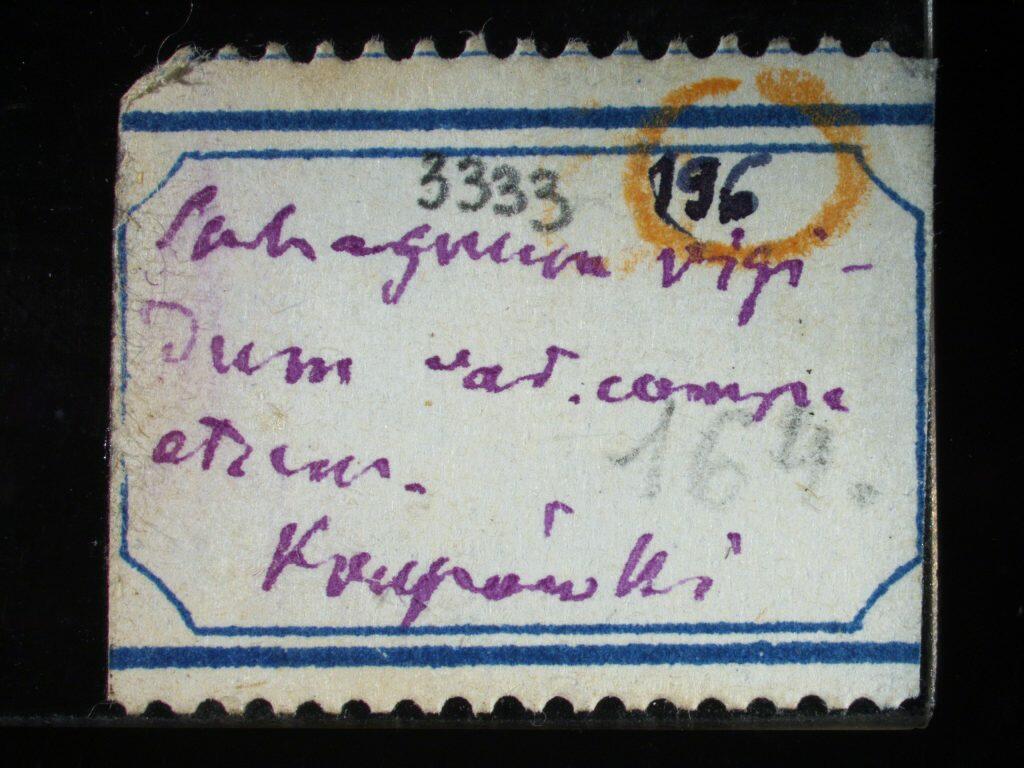 3333 196
Sphagnum rigi-
dum var. comp
actum.
164.
Krupówki